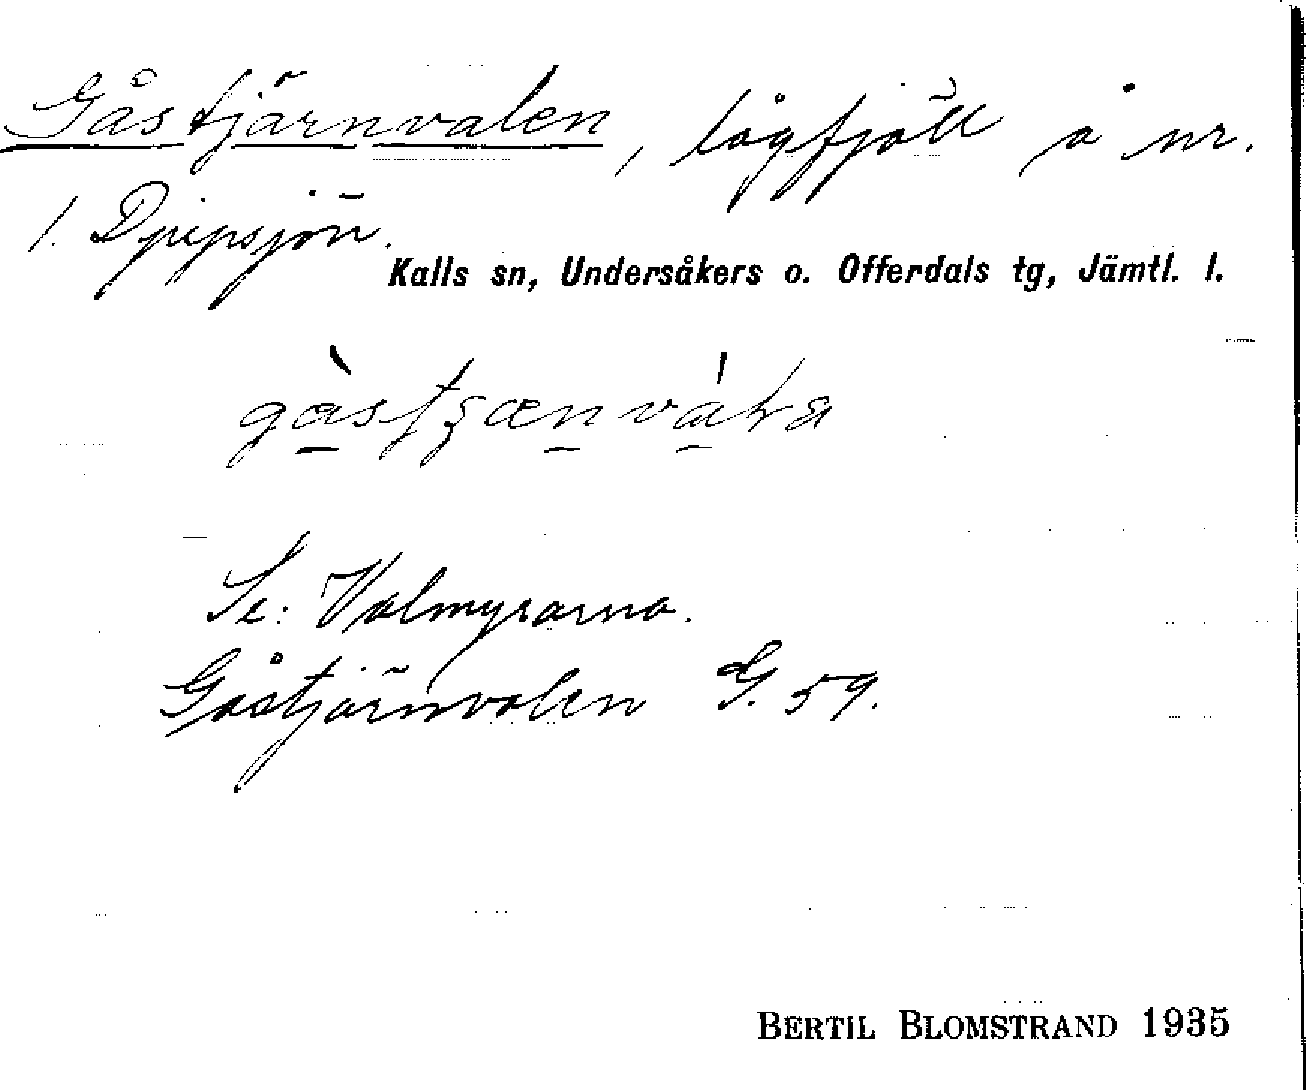 Gåstjärnvalen, lågfjäll å nr.
1. Djupsjön.
Kalls sn, Undersåkers o. Offerdals tg, Jämtl. l.
Se: Valmyrarna.
Gåstjärnvalen G. 59.
BERTIL BLOMSTRAND 1935